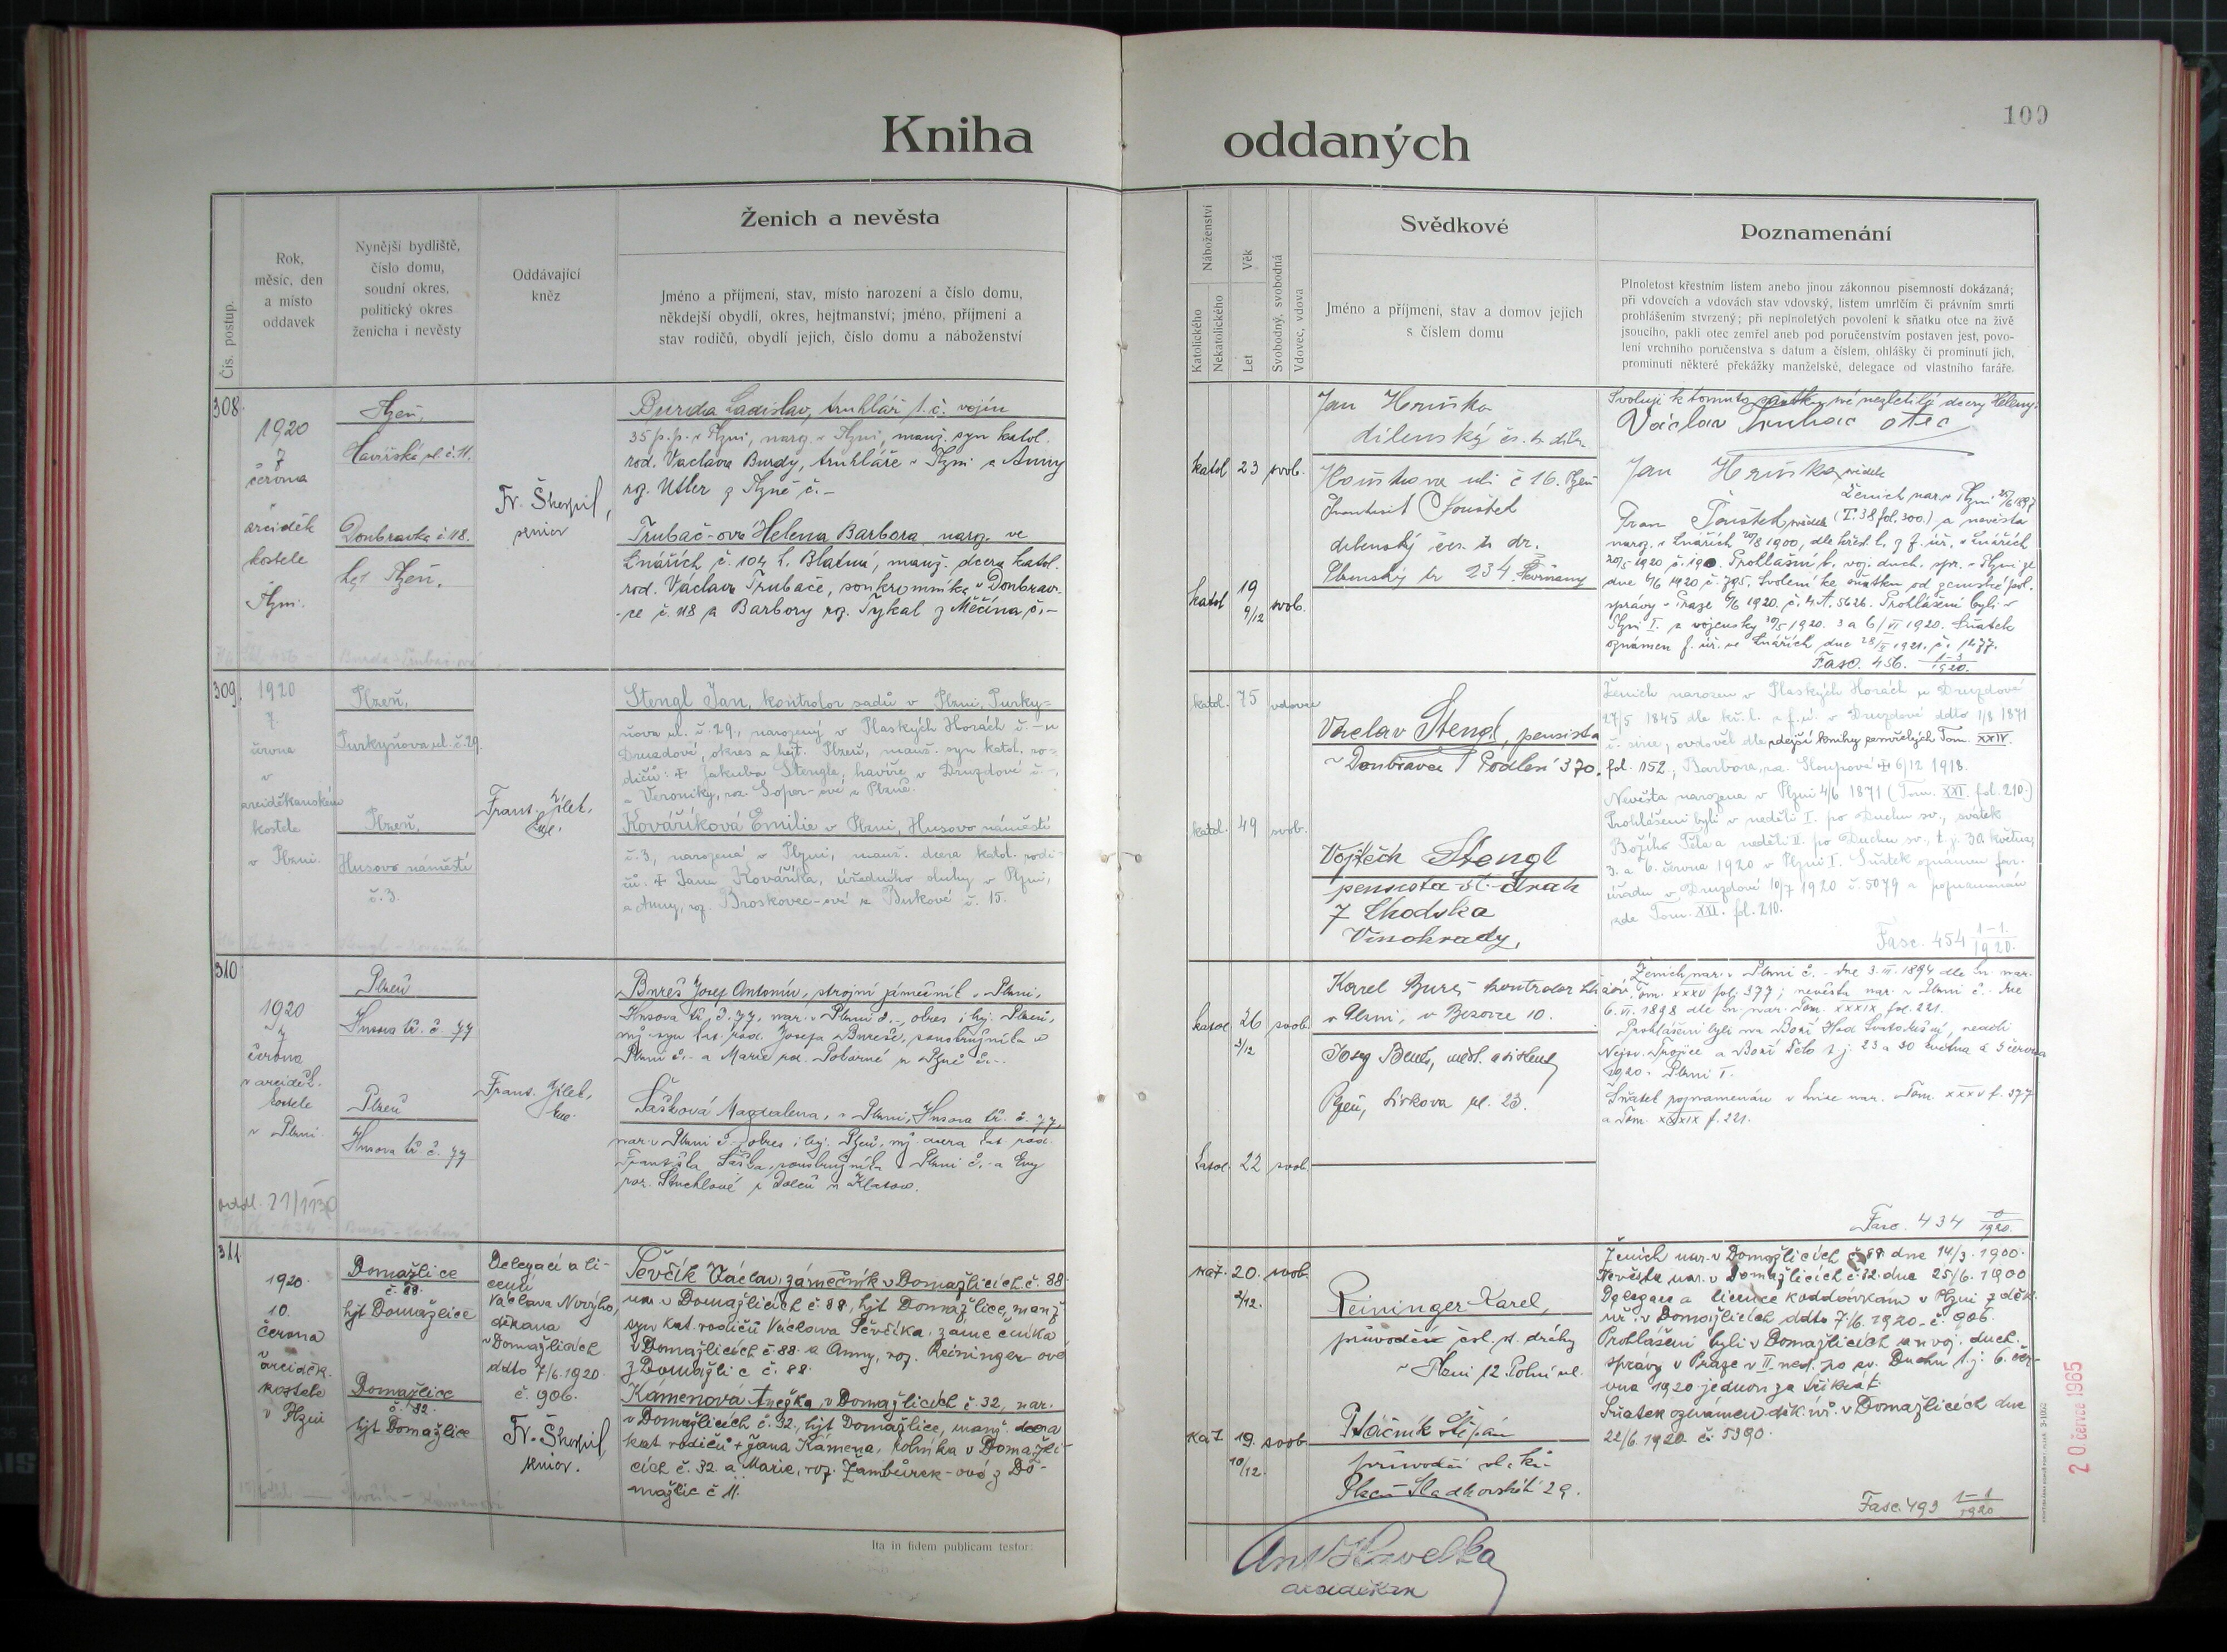 Kniha
oddaných
109
Čís. postup.
Rok,
měsíc, den
a místo
oddavek
Nynější bydliště,
číslo domu,
soudní okres,
politický okres
ženicha i nevěsty
Oddávající
kněz
Ženich a nevěsta
Jméno a příjmení, stav, místo narození a číslo domu,
někdejší obydlí, okres, hejtmanství; jméno, příjmení a
stav rodičů, obydlí jejich, číslo domu a náboženství
Náboženství
Katolického
Nekatolického
Věk
Let
Svobodný, svobodná
Vdovec, vdova
Svědkové
Jméno a příjmení, stav a domov jejich
s číslem domu
Poznamenání
Plnoletost křestním listem anebo jinou zákonnou písemností dokázaná;
při vdovcích a vdovách stav vdovský, listem umrlčím či právním smrti
prohlášením stvrzený; při neplnoletých povolení k sňatku otce na živě
jsoucího, pakli otec zemřel aneb pod poručenstvím postaven jest, povo-
lení vrchního poručenstva s datum a číslem, ohlášky či prominutí jich,
prominutí některé překážky manželské, delegace od vlastního faráře.
308
1920
7
června
arciděk
kostele
Plzni.
Plzeň,
Havířská ul. č. 11.
Doubravka č. 118.
hejt. Plzeň.
Fr. Škorpil,
senior
Burda Ladislav, truhlář t. č. vojín
35 p. p. v Plzni, naroz. v Plzni, manž. syn katol.
rod. Václava Burdy, truhláře v Plzni a Anny
roz. Utler z Plzně č. –
Trubač-ova Helena Barbora, naroz. ve
Lnářích č. 104 h. Blatná, manž. dcera katol.
rod. Václava Trubače, soukromníka v Doubrav-
-ce č. 118 a Barbory roz. Tykal z Měčína č. –
katol 23 svob.
katol 19 9/12 svob.
Jan Hruška
dílenský
č 16. Plzeň
dílenský
234
Svoluji k tomuto sňatku své nezletilé dcery Heleny.
Václav Trubač otec
Jan Hruška svědek
Ženich nar. v Plzni
svědek (T. 38 fol. 300.) a nevěsta
naroz. v Lnářích 20/8 1900, dle křest. l. z f. úř. v Lnářích
Prohlášení b. voj. duch. spr. v Plzni ze
dne 6/6 1920 č. 795. Svolení ke sňatku od zemské pol.
správy v Praze 6/6 1920. č. 4 A. 5626. Prohlášeni byli v
Plzni I. a vojensky 30/5 1920. 3 a 6/VI 1920. Sňatek
oznámen f. úř. ve Lnářích dne
Fasc. 456. 1-3/1920.
309.
1920
7.
června
v
arciděkanském
kostele
v Plzni.
Plzeň,
Purkyňova ul. č. 29.
Plzeň,
Husovo náměstí
č. 3.
Frant. Jílek,
Stengl Jan, kontrolor sadů v Plzni, Purky-
ňova ul. č. 29., narozený v Plaských Horách č. – u
Druzdové, okres a hejt. Plzeň, manž. syn katol. ro-
dičů: + Jakuba Stengle, havíře v Druzdové č. –,
a Veroniky, roz. Soper-ové z Plzně.
Kováříková Emilie v Plzni, Husovo náměstí
č. 3, narozená v Plzni, manž. dcera katol. rodi-
čů: + Jana Kováříka, úředního sluhy v Plzni,
a Anny, roz. Broskovec-ové z Bukové č. 15.
katol. 75 vdovec
katol. 49 svob.
Václav Stengl, pensista
v Doubravce Podlesí 370.
Vojtěch Stengl
pensista st. drah
7 Chodska
Vinohrady,
Ženich narozen v Plaských Horách u Druzdové
27/5 1845 dle kř. l. z f. ú. v Druzdové ddto 1/8 1871
č. sine, ovdověl dle zdejší knihy zemřelých Tom. XXIV.
fol. 152., Barbora, roz. Sloupová + 6/12 1918.
Nevěsta narozena v Plzni 4/6 1871 (Tom. XXI. fol. 210.)
Prohlášeni byli v neděli I. po Duchu sv., svátek
Božího Těla a neděli II. po Duchu sv., t. j. 30. května,
3. a 6. června 1920 v Plzni I. Sňatek oznámen far.
úřadu v Druzdové 10/7 1920 č. 5079 a poznamenán
zde Tom. XXI. fol. 210.
Fasc. 454 1-1./1920.
310
1920
7
června
v arciděk.
kostele
v Plzni
Plzeň
Husova tř. č. 77
Plzeň
Husova tř. č. 77
Frant. Jílek,
Bureš Josef Antonín, strojní zámečník v Plzni,
Husova tř. č. 77, nar. v Plzni č. –, okres i hej. Plzeň,
mž. syn kat. rod. Josefa Bureše, soustružníka v
Plzni č. – a Marie roz. Poborné z Plzně č. –.
Lašková Magdalena, v Plzni, Husova tř. č. 77,
nar. v Plzni č. – okres i hej. Plzeň, mž. dcera kat. rod.
Františka Laška, soustružníka v Plzni č. – a Evy
roz. Stuchlové z Dolců u Klatov.
katol 26 3/12 svob.
katol 22 svob.
Karel Bureš kontrolor
v Plzni, v Bezovce 10.
Josef Beneš, asistent
Plzeň, Žižkova ul. 23.
Ženich nar. v Plzni č. – dne 3. III. 1894 dle kn. nar.
Tom. XXXV fol. 377; nevěsta nar. v Plzni č. – dne
6. VI. 1898 dle kn. nar. Tom. XXXIX, fol. 221.
Prohlášeni byli na Boží Hod Svatodušní, neděli
Nejsv. Trojice a Boží Tělo t. j. 23 a 30 května a 3 června
1920 v Plzni I.
Sňatek poznamenán v knize nar. Tom. XXXV f. 377
a Tom. XXXIX f. 221.
Fasc. 434 0/1920.
311.
1920.
10.
června
v
arciděk.
kostele
v Plzni
Domažlice
č. 88.
hjt Domažlice
Domažlice
č. 32.
hjt Domažlice
Delegací a li-
cencí
Václava
děkana
v Domažlicích
ddto 7/6. 1920.
č. 906.
Fr. Škorpil,
senior.
Ševčík Václav, zámečník v Domažlicích č. 88
nar. v Domažlicích č. 88, hjt Domažlice, manž
syn kat. rodičů Václava Ševčíka, zámečníka
v Domažlicích č. 88 a Anny, roz. Reininger-ové
z Domažlic č. 88.
Kamenová Anežka, v Domažlicích č. 32, nar.
v Domažlicích č. 32, hjt Domažlice, manž. dcera
kat rodičů + Jana Kamena, rolníka v Domažli-
cích č. 32 a Marie, roz. Žambůrek-ové z Do-
mažlic č. 11.
kat. 20. 2/12. svob
kat 19. 10/12. svob
Reininger Karel,
průvodčí čsl. st. dráhy
v Plzni 12 Polní ul.
Ptáčník Štěpán
průvodčí
Plzeň Sladkovského 29.
Ženich nar. v Domažlicích č. 88 dne 14/3. 1900.
Nevěsta nar. v Domažlicích č. 32. dne 25/6. 1900
Delegace a licence k oddavkám v Plzni z děk.
úř. v Domažlicích ddto 7/6. 1920. č. 906.
Prohlášeni byli v Domažlicích a u voj. duch.
správy v Praze v II. ned. po sv. Duchu t. j. 6. čer-
vna 1920 jednou za třikrát.
Sňatek oznámen děk. úř. v Domažlicích dne
22/6. 1920. č. 5390.
Fasc. 493 1-1/1920
Ita in fidem publicam testor:
Ant. Havelka
arciděkan
20 července 1965